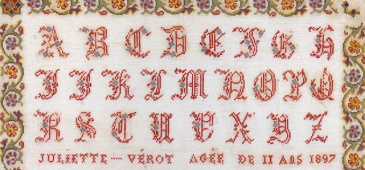 A B C D E F G H
I J K L M N O P Q
R S T U V X Y Z
JULIETTE — VÉROT AGÉE DE 11 ANS 1897